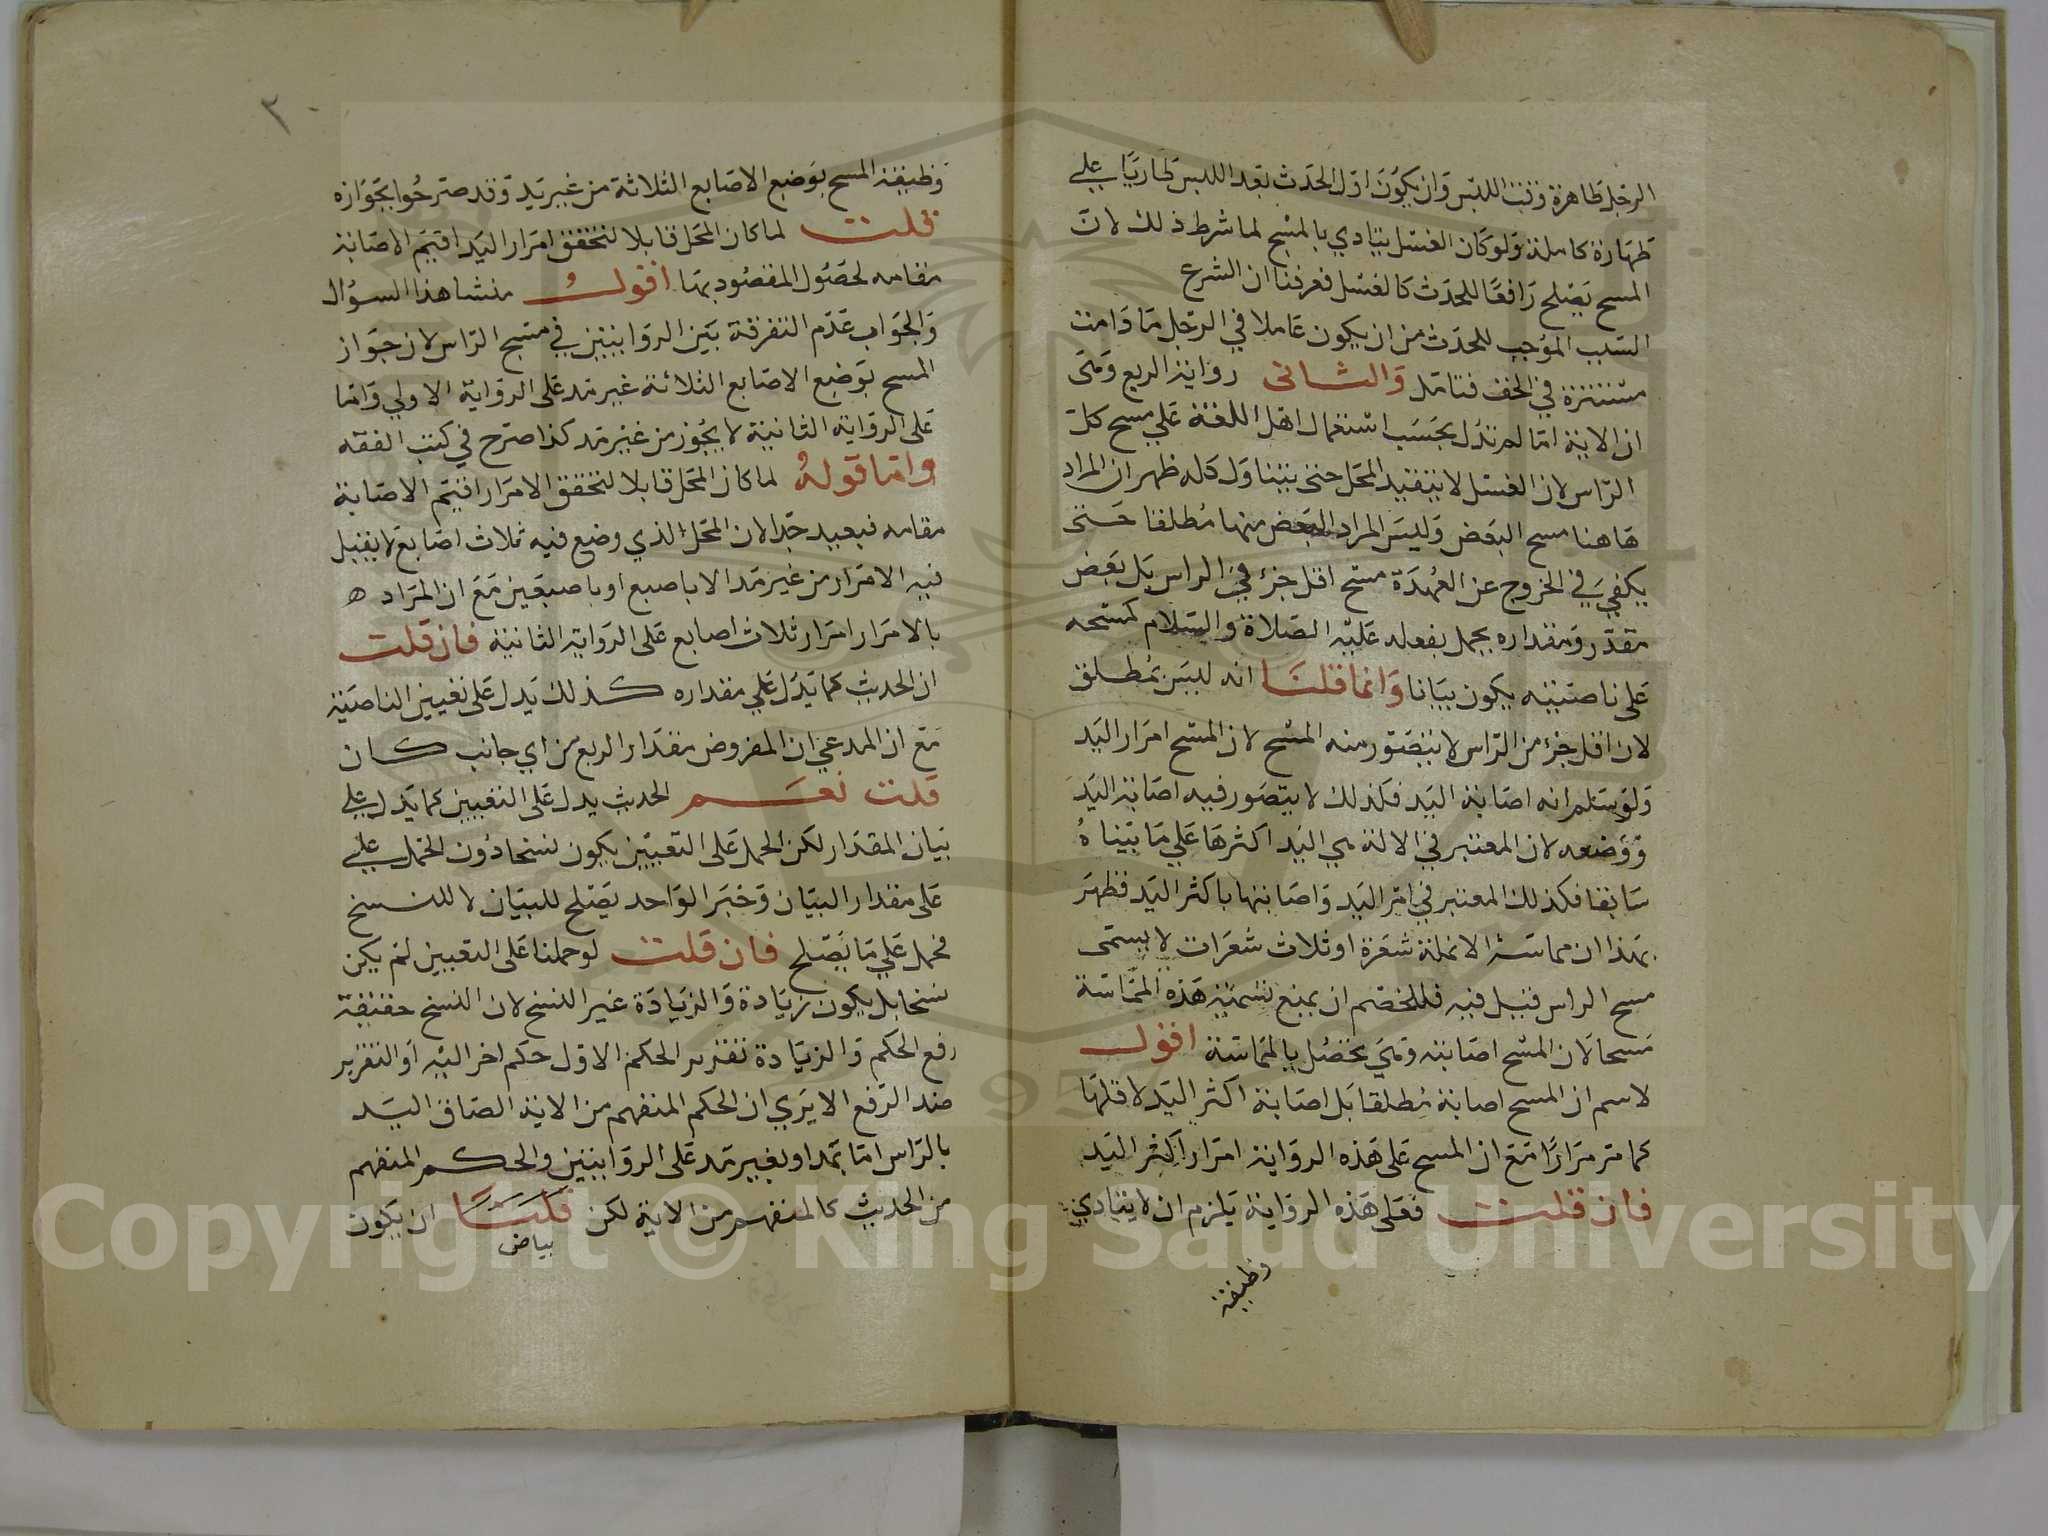 الرجل طاهرة وقت اللبس وان يكون اول الحدث بعد اللبس طاريا علي
طهارة كاملة ولو كان الغسل يتادي بالمسح لما شرط ذلك لان
المسح يصلح رافعا للحدث كالغسل فعرفنا ان الشرع
السبب الموجب للحدث من ان يكون عاملا في الرجل ما دامت
مستترة في الخف فتامل والثاني رواية الربع وهي
ان الاية امّا لم تدل بحسب استعمال اهل اللغة علي مسح كل
الراس لان الغسل لا يتقيد المحل حتى يتناول كله ظهر ان المراد
هاهنا مسح البعض وليس المراد البعض منها مطلقا حتى
يكفي في الخروج عن العهدة مسح اقل جزء في الراس بل بعض
مقدر ومقداره يجمل بفعله عليه الصلاة والسلام كمسحه
على ناصيته يكون بيانا وانما قلنا انه لبس بمطلق
لان اقل جزء من الراس لا يتصور منه المسح لان المسح امرار اليد
ولو سلم انه اصابة اليد فكذلك لا يتصور فيه اصابة اليد
ووضعه لان المعتبر في الالة هي اليد اكثرها علي ما بيناه
سابقا فكذلك المعتبر في امر اليد واصابتها باكثر اليد فظهر
بهذا ان مماسة الانملة شعرة او ثلاث شعرات لا يسمى
مسح الراس قيل فيه فللخصم ان يمنع تسمية هذه المماسة
مسحا لان المسح اصابته وهي تحصل بالمماسة اقول
لاسم ان المسح اصابة مطلقا بل اصابة اكثر اليد لا قلها
كما مر مرارا مع ان المسح على هذه الرواية امرار اكثر اليد
فان قلت فعلى هذه الرواية يلزم ان لا يتادي
وظيفة
٢٠
وظيفة المسح بوضع الاصابع الثلاثة من غير يد وقد صرحوا بجوازه
قلت لما كان المحل قابلا لتحقق امرار اليد اقيم الاصابة
مقامه لحصول المقصود بها اقول منشا هذا السوال
والجواب عدم التفرقة بين الروايتين في مسح الراس لان جواز
المسح بوضع الاصابع الثلاثة غير مد على الرواية الاولي واما
على الرواية الثانية لا يجوز من غير مد كذا صرح في كتب الفقه
واما قوله لما كان المحل قابلا لتحقق الامرار اقيم الاصابة
مقامه فبعيد جدا لان المحل الذي وضع فيه ثلاث اصابع لا يقبل
فيه الامرار من غير مد الا باصبع او باصبعين مع ان المراد ه
بالامرار امرار ثلاث اصابع على الرواية الثانية فان قلت
ان الحديث كما يدل علي مقداره كذلك يدل على تعيين الناصية
مع ان المدعي ان المفروض مقدار الربع من اي جانب كان
قلت نعم الحديث يدل على التعيين كما يدل علي
بيان المقدار لكن الحمل على التعيين يكون نسخا دون الحمل علي
على مقدار البيان وخبر الواحد يصلح للبيان لا للنسخ
فحمل علي ما يصلح فان قلت لو حملنا على التعيين لم يكن
نسخا بل يكون زيادة والزيادة غير النسخ لان النسخ حقيقة
رفع الحكم والزيادة تقرير الحكم الاول حكم اخر اليه او التقرير
ضد الرفع الا يري ان الحكم المتفهم من الاية الصاق اليد
بالراس اما بمد او بغير مد على الروايتين والحكم المتفهم
من الحديث كالمتفهم من الاية لكن قلتا ان يكون
بياض
Copyright © King Saud University